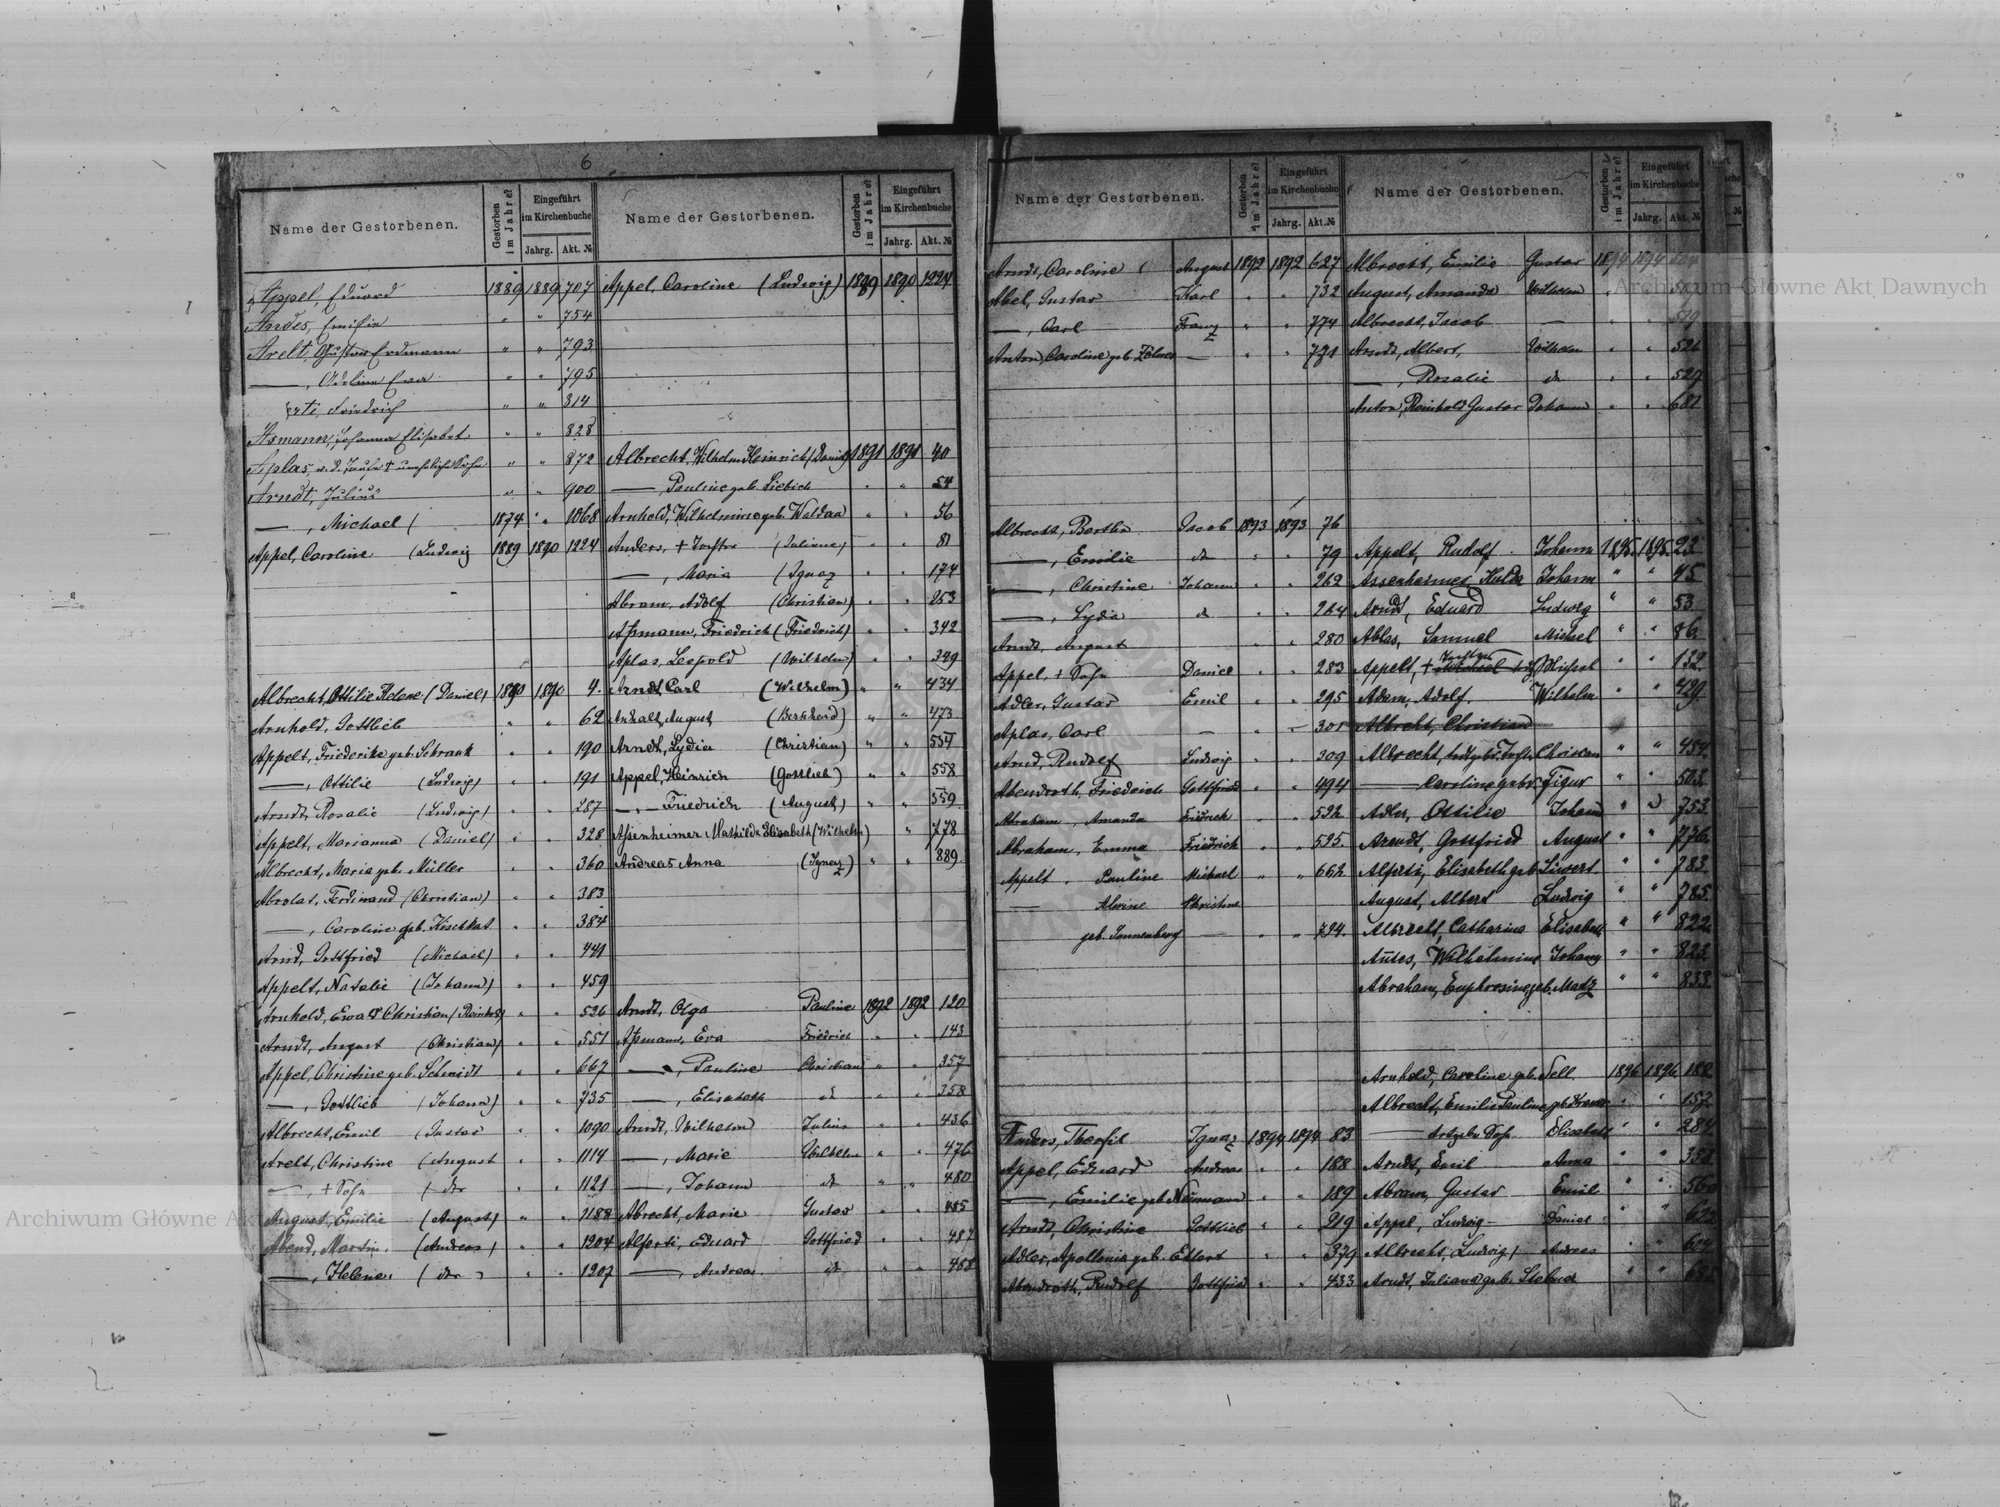 6
Name der Gestorbenen.
Gestorben im Jahre?
Eingeführt im Kirchenbuche
Jahrg. Akt. №
Appel, Eduard 1889 1889 707
Andes, Emilie " " 754
Arelt, Gustav Erdmann " " 793
—, Adeline Ewa " " 795
Friedrich " " 814
Asmann, Johanna Elisabet " " 828
Aplas, " " 872
Arndt, Julius " " 900
—, Michael ( 1874 " 1068
Appel, Caroline (Ludwig 1889 1890 1224
Albrecht, Ottilie Helene (Daniel) 1890 1890 4.
Arnhold, Gottlieb " " 62
Appelt, Friederike geb. Schrank " " 190
—, Ottilie (Ludwig) " " 191
Arndt, Rosalie (Ludwig) " " 287
Appelt, Marianna (Daniel) " " 328
Albrecht, Maria geb. Müller " " 360
Ferdinand (Christian) " " 383
—, Caroline geb. " " 384
Arnd, Gottfried (Michael) " " 441
Appelt, Natalie (Johann) " " 459
Arnhold, Ewald Christian (Reinhold) " " 526
Arndt, August (Christian) " " 551
Appel, Christine geb. Schmidt " " 667
—, Gottlieb (Johann) " " 735
Albrecht, Emil (Gustav " " 1090
Arelt, Christine (August " " 1114
—, + Sohn ( der " " 1121
August, Emilie (August) " " 1188
Abend, Martin. (Andreas) " " 1204
—, Helene ( der " " 1207
Name der Gestorbenen.
Gestorben im Jahre?
Eingeführt im Kirchenbuche
Jahrg. Akt. №
Appel, Caroline (Ludwig) 1889 1890 1224
Albrecht, Wilhelm Heinrich (Daniel) 1891 1891 40
—, Pauline geb. Liebich " " 54
Arnhold, Wilhelmine geb. Waldau " " 56
Anders, + Tochter (Juliane) " " 81
—, Maria (Ignaz " " 174
Abram, Adolf (Christian) " " 253
Aßmann, Friedrich (Friedrich) " " 342
Aplas, Leopold (Wilhelm) " " 349
Arndt Carl (Wilhelm) " " 434
Anhalt, August (Bernhard) " " 473
Arndt, Lydia (Christian) " " 554
Appel, Heinrich (Gottlieb) " " 558
—, Friedrich (August) " " 559
Assenheimer Mathilde Elisabeth (Wilhelm) " 778
Andreas Anna (Ignaz) " " 889
Arndt, Olga Pauline 1892 1892 120
Aßmann, Eva Friedrich " " 143
—, Pauline Christian " " 357
—, Elisabeth d " " 358
Arndt, Wilhelm Julius " " 436
—, Marie Wilhelm " " 476
—, Johann d " " 480
Abrecht, Marie Gustav " " 485
Alferti, Eduard Gottfried " " 487
—, Andreas d " " 488
Name der Gestorbenen.
Gestorben im Jahre?
Eingeführt im Kirchenbuche
Jahrg. Akt. №
Arndt, Caroline ( August 1892 1892 627
Abel, Gustav Karl " " 732
—, Carl Franz " " 774
Anton, Caroline geb. — " " 791
Albrecht, Bertha Jacob 1893 1893 76
—, Emilie d " " 79
—, Christine Johann " " 262
—, Lydia d " " 264
Arndt, August " " 280
Appel, + Sohn Daniel " " 283
Adler, Gustav Emil " " 295
Aplas, Carl — " — 301
Arnd, Rudolf Ludwig " " 309
Abendroth, Friedrich Gottfried " " 494
Abraham, Amanda Friedrich " " 592
Abraham, Emma Friedrich " " 595.
Appelt, Pauline Michael " " 662
— Alwine Christine
geb. Sonnenberg — " " 794.
Anders, Theofil Ignaz 1894 1894 83
Appel, Eduard Andreas " " 188
—, Emilie geb. Neumann " " 189
Arndt, Christine Gottlieb " " 219
Adler, Apollonia geb. Eckert " " 379
Abendroth, Rudolf Gottfried " " 433
Name der Gestorbenen.
Gestorben im Jahre?
Eingeführt im Kirchenbuche
Jahrg. Akt. №
Albrecht, Emilie Gustav 1894 1894 504
August, Amanda Wilhelm " "
Albrecht, Jacob — " " 519
Arndt, Albert, Wilhelm " " 526
—, Rosalie d " " 529
Anton, Reinhold Gustav Johann " " 681
Appelt, Rudolf Johann 1895 1895 23
Assenheimer Hulda Johann " " 45
Arndt, Eduard Ludwig " " 53
Ablas, Samuel Michael " " 86
Appelt, + Tochter Michael " " 132
Adam, Adolf, Wilhelm " " 429
Albrecht, Christian
Albrecht, Tochter Christian " " 454
— Caroline geb. Figur " " 502
Adler, Ottilie Johann " " 753
Arendt, Gottfried August " " 776
Alferti, Elisabeth geb. Siewert " " 783
August, Albert Ludwig " " 785
Albrecht, Catharina Elisabeth " " 822
Antes, Wilhelmine Johann " " 823
Abraham, Euphrosine geb. Matz " " 833
Arnhold, Caroline geb. Sell 1896 1896
Albrecht, Emilie Pauline geb. " " 157
— Sohn Elisabeth " " 284
Arndt, Emil Anna " " 358
Abram, Gustav Emil " " 560
Appel, Ludwig Daniel " "
Albrecht, Ludwig Andreas " "
Arndt, Juliana geb. " "
Archiwum Główne Akt Dawnych
Archiwum Główne Akt Dawnych